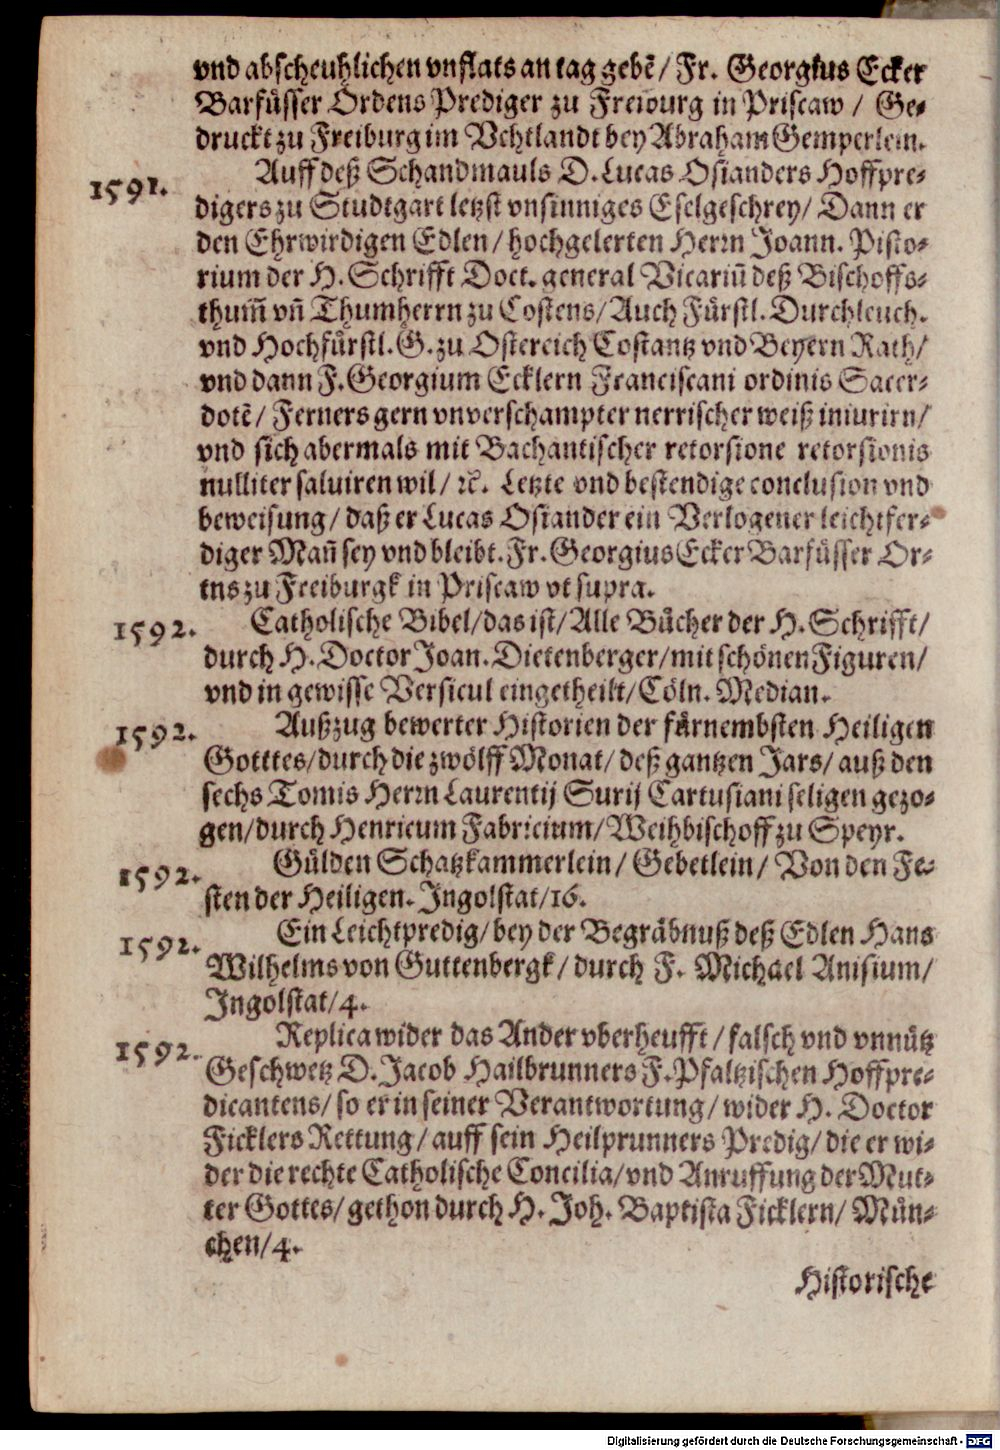 vnd abscheuhlichen vnflats an tag gebẽ/ Fr. Georgius Ecker
Barfuͤsser Ordens Prediger zu Freiburg in Priscaw / Ge-
druckt zu Freiburg im Vchtlandt bey Abraham Gemperlein.
1591. Auff deß Schandmauls D. Lucas Osianders Hoffpre-
digers zu Studtgart letzst vnsinniges Eselgeschrey/ Dann er
den Ehrwirdigen Edlen/ hochgelerten Herrn Joann. Pisto-
rium der H. Schrifft Doct. general Vicariũ deß Bischoffs-
thum̃ vñ Thumherrn zu Costens/ Auch Fürstl. Durchleuch.
vnd Hochfürstl. G. zu Ostereich Costantz vnd Beyern Rath/
vnd dann F. Georgium Ecklern Franciscani ordinis Sacer-
dotẽ/ Ferners gern vnverschampter nerrischer weiß iniurirn/
vnd sich abermals mit Bachantischer retorsione retorsionis
nulliter saluiren wil/ ꝛc. Letzte vnd bestendige conclusion vnd
beweisung/ daß er Lucas Osiander ein Verlogener leichtfer-
diger Mañ sey vnd bleibt. Fr. Georgius Ecker Barfuͤsser Or-
tns zu Freiburgk in Priscaw vt supra.
1592. Catholische Bibel/ das ist/ Alle Buͤcher der H. Schrifft/
durch H. Doctor Joan. Dietenberger/ mit schoͤnen Figuren/
vnd in gewisse Versicul eingetheilt/ Coͤln. Median.
1592. Außzug bewerter Historien der fuͤrnembsten Heiligen
Gotttes/ durch die zwoͤlff Monat/ deß gantzen Jars/ auß den
sechs Tomis Herrn Laurentij Surij Cartusiani seligen gezo-
gen/ durch Henricum Fabricium/ Weihbischoff zu Speyr.
1592. Guͤlden Schatzkammerlein/ Gebetlein/ Von den Fe-
sten der Heiligen. Ingolstat/ 16.
1592. Ein Leichtpredig/ bey der Begraͤbnuß deß Edlen Hans
Wilhelms von Guttenbergk/ durch F. Michael Anisium/
Ingolstat/ 4.
1592. Replica wider das Ander vberheufft/ falsch vnd vnnuͤtz
Geschwetz D. Jacob Hailbrunners F. Pfaltzischen Hoffpre-
dicantens/ so er in seiner Verantwortung/ wider H. Doctor
Ficklers Rettung/ auff sein Heilprunners Predig/ die er wi-
der die rechte Catholische Concilia/ vnd Anruffung der Mut-
ter Gottes/ gethon durch H. Joh. Baptista Ficklern/ Muͤn-
chen/ 4.
Historische
Digitalisierung gefördert durch die Deutsche Forschungsgemeinschaft - DFG